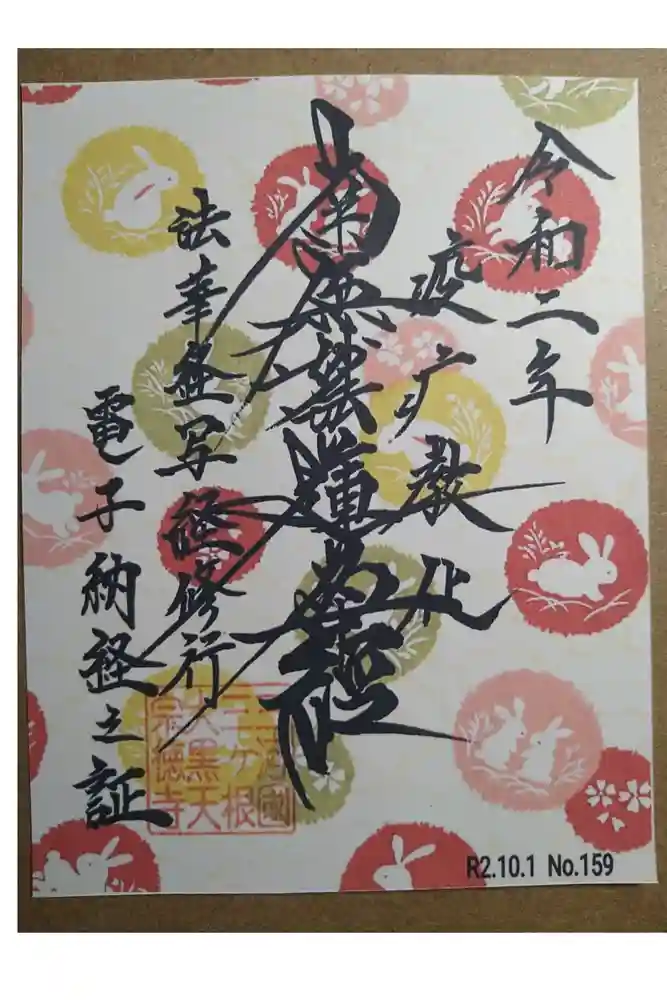 令和二年
疫病教化
南無妙法蓮華経
法華経写経修行
電子納経之証
三河國
三ヶ根
大黒天
宗徳寺
R2.10.1 No.159